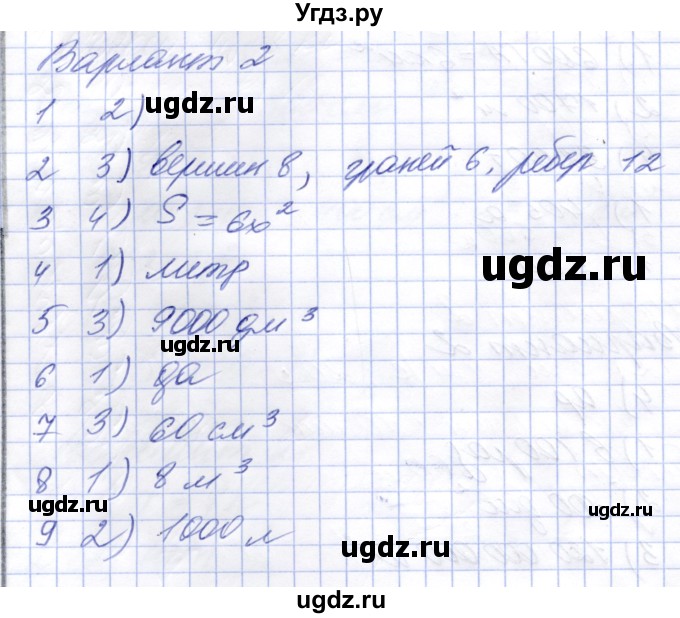 Угдз.ру
Вариант 2
1 2)
ugdz.ru
2 3) вершин 8, граней 6, ребер 12
3 4) S = 6x²
ugdz.ru
4 1) литр
5 3) 9000 дм³
ugdz.ru
6 1) да
7 3) 60 см³
8 1) 8 м³
ugdz.ru
ugdz.ru
9 2) 1000 л
ugdz.ru
ugdz.ru